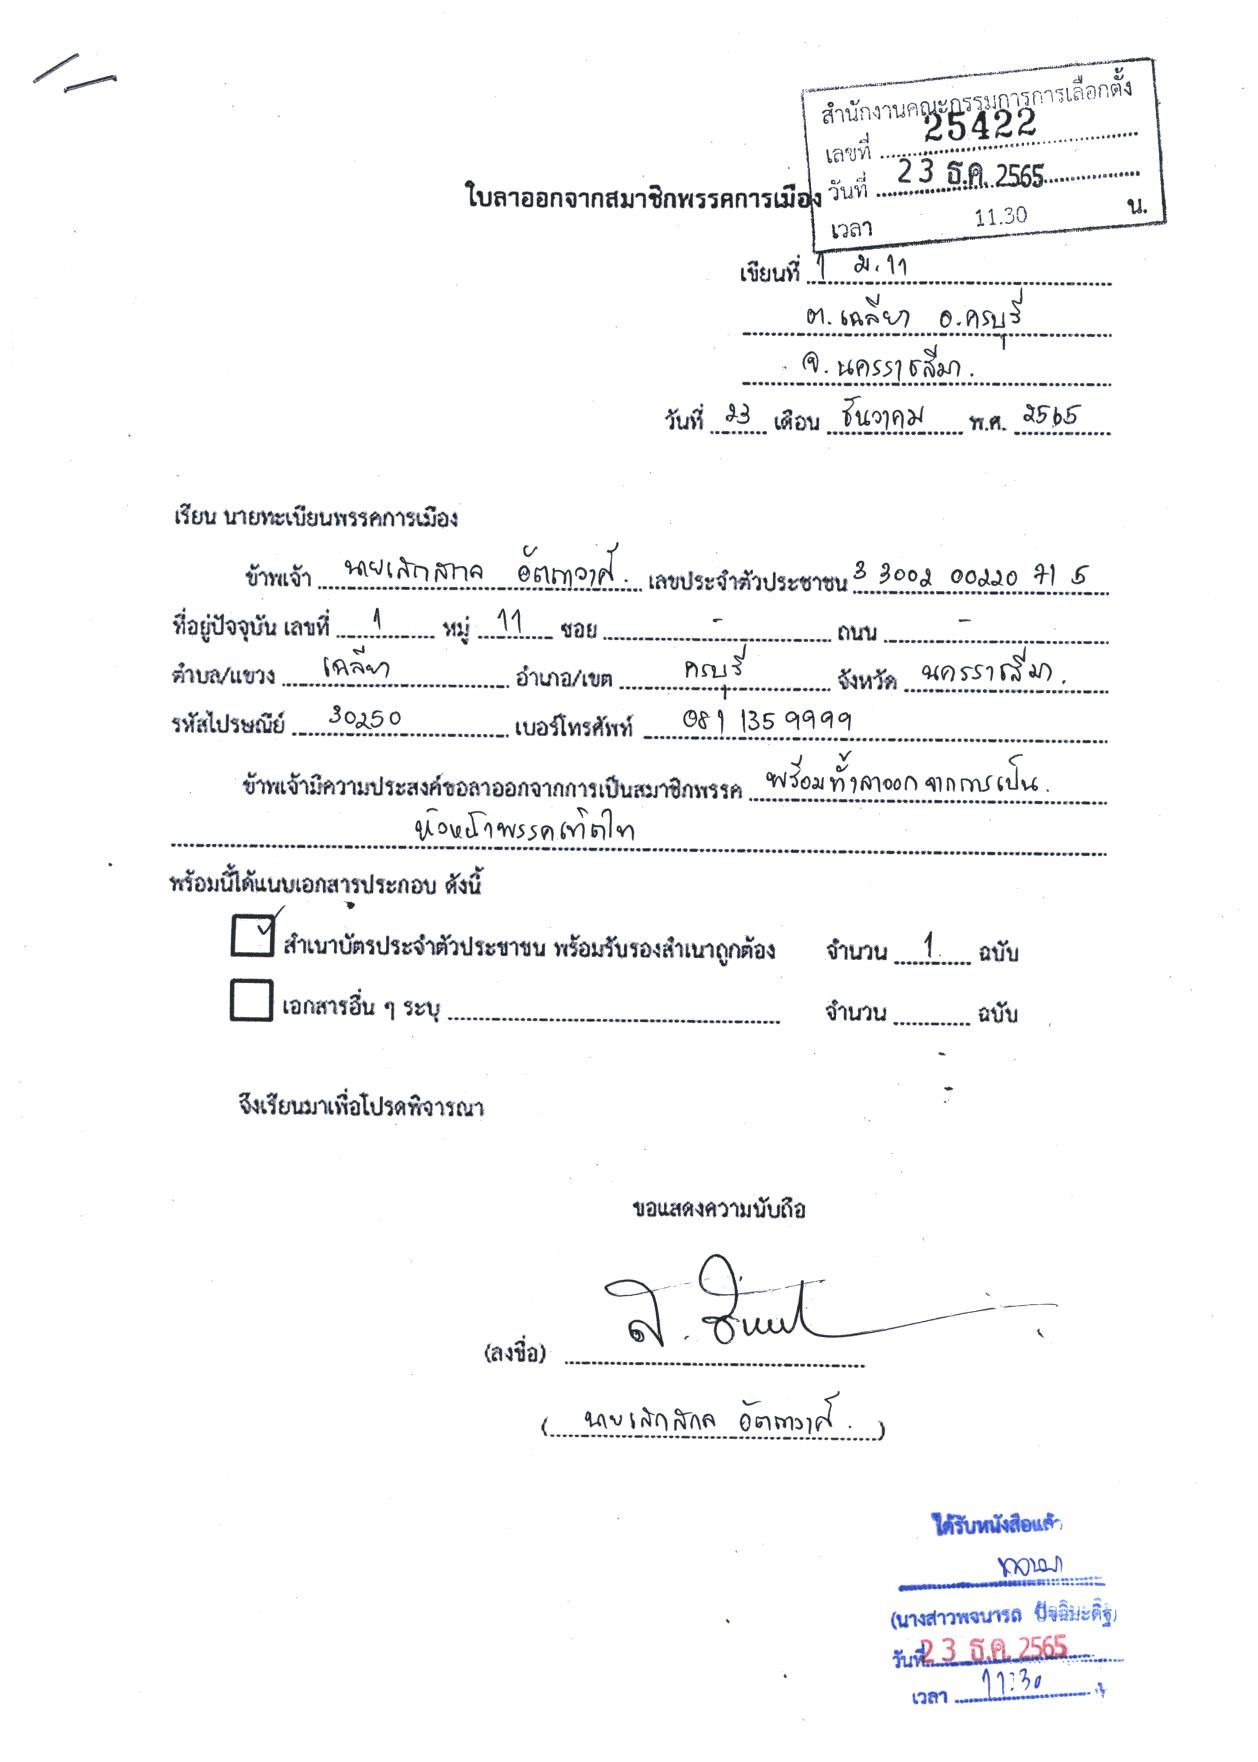 สำนักงานคณะกรรมการการเลือกตั้ง
เลขที่ 25422
วันที่ 23 ธ.ค. 2565
เวลา 11.30 น.
ใบลาออกจากสมาชิกพรรคการเมือง
เขียนที่ 1 ม.11
ต.เฉลียง อ.ครบุรี
จ.นครราชสีมา.
วันที่ 23 เดือน ธันวาคม พ.ศ. 2565
เรียน นายทะเบียนพรรคการเมือง
ข้าพเจ้า นายเสกสกล อัตถาวงศ์. เลขประจำตัวประชาชน 3 3002 00220 71 5
ที่อยู่ปัจจุบัน เลขที่ 1 หมู่ 11 ซอย - ถนน -
ตำบล/แขวง เฉลียง อำเภอ/เขต ครบุรี จังหวัด นครราชสีมา.
รหัสไปรษณีย์ 30250 เบอร์โทรศัพท์ 081 135 9999
ข้าพเจ้ามีความประสงค์ขอลาออกจากการเป็นสมาชิกพรรค พร้อมทั้งลาออกจากการเป็น.
หัวหน้าพรรคเทิดไท
พร้อมนี้ได้แนบเอกสารประกอบ ดังนี้
✓ สำเนาบัตรประจำตัวประชาชน พร้อมรับรองสำเนาถูกต้อง จำนวน 1 ฉบับ
เอกสารอื่น ๆ ระบุ จำนวน ฉบับ
จึงเรียนมาเพื่อโปรดพิจารณา
ขอแสดงความนับถือ
(ลงชื่อ)
( นายเสกสกล อัตถาวงศ์. )
ได้รับหนังสือแล้ว
(นางสาวพจนารถ ปัจฉิมะดิฐ)
วันที่ 23 ธ.ค. 2565
เวลา 11:30 น